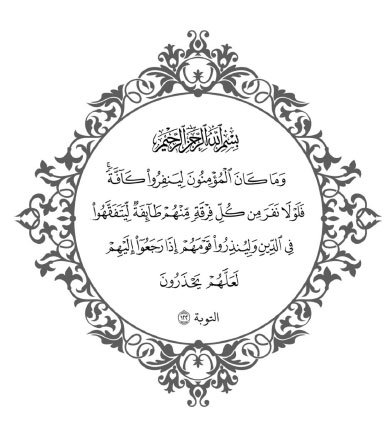 بِسْمِ اللَّهِ الرَّحْمَٰنِ الرَّحِيمِ
وَمَا كَانَ ٱلْمُؤْمِنُونَ لِيَنفِرُوا۟ كَآفَّةً ۚ
فَلَوْلَا نَفَرَ مِن كُلِّ فِرْقَةٍ مِّنْهُمْ طَآئِفَةٌ لِّيَتَفَقَّهُوا۟
فِى ٱلدِّينِ وَلِيُنذِرُوا۟ قَوْمَهُمْ إِذَا رَجَعُوٓا۟ إِلَيْهِمْ
لَعَلَّهُمْ يَحْذَرُونَ
التوبة ١٢٢